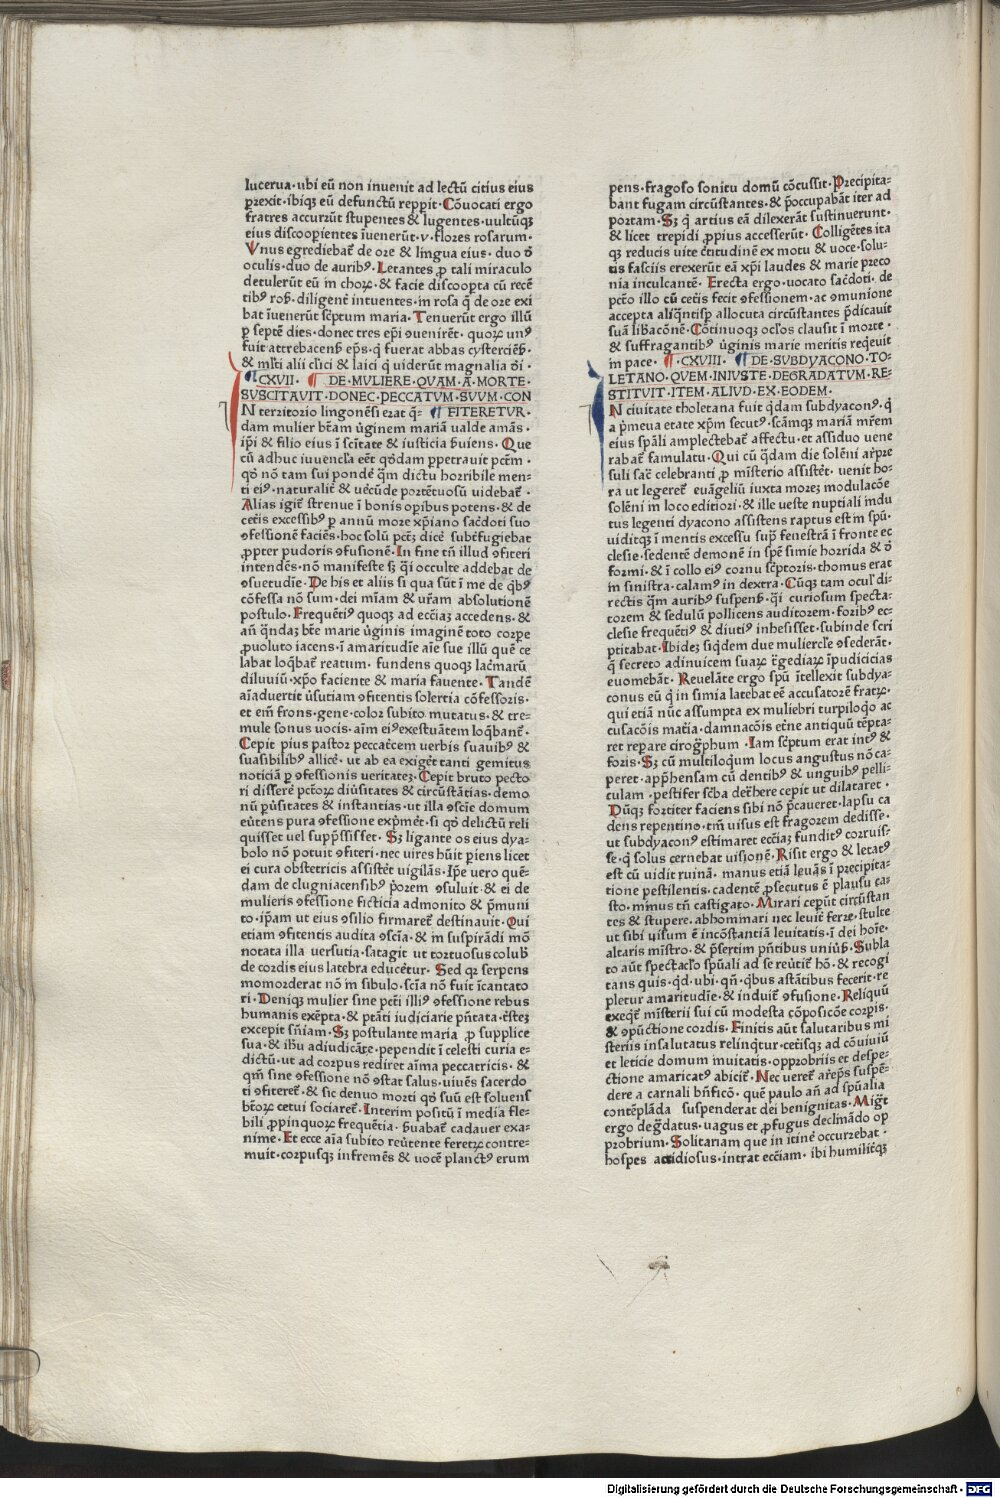 lucerna·ubi eū non inuenit ad lectū citius eius
ꝑrexit·ibiqꝫ eū defunctū reppit·Cōuocati ergo
fratres accurrūt stupentes & lugentes·uultūqꝫ
eius discooperientes īuenerūt·v·flores rosarum·
Vnus egrediebat᷑ de ore & lingua eius·duo ð
oculis·duo de auribꝰ·Letantes ꝓ tali miraculo
detulerūt eū in choꝝ·& facie discoopta cū recē
tibꝰ ros̄·diligent᷑ intuentes·in rosa q̄ de ore exi
bat īuenerūt sc̄ptum maria·Tenuerūt ergo illū
ꝑ septē dies·donec tres ep̄i ꝯuenirēt·quoꝝ unꝰ
fuit attrebacens̄ ep̄s·q̇ fuerat abbas cystercieñ·
& ml̄ti alii cl̄ici & laici q̇ uiderūt magnalia dī·
¶ CXVII· ¶ DE·MVLIERE·QVAM·A·MORTE·
SVSCITAVIT·DONEC·PECCATVM·SVVM·CON
N territorio lingonēsi erat q̄· ¶ FITERETVR·
dam mulier btām ūginem mariā ualde amās·
ip̄i & filio eius ī sc̄itate & iusticia s̄uiens·Que
cū adhuc iuvencl̄a eēt qōdam ꝑpetrauit pctm̄·
qō nō tam sui pondē q̄m dictu horribile men-
ti eiꝰ·naturalit᷑ & uēcūde portētuosū uidebat᷑·
Alias igit᷑ strenue ī bonis opibus potens·& de
cet̄is excessibꝰ ꝑ annū more xp̄iano sac̄doti suo
ꝯfessionē faciēs·hoc solū pctꝫ dicē subt᷑fugiebat
ꝓpter pudoris ꝯfusionē·In fine tn̄ illud ꝯfiteri
intendēs·nō manifeste sꝫ q̄i occulte addebat de
ꝯsuetudīe·De his et aliis si qua sūt ī me de q̇bꝰ
cōfessa nō sum·dei mīam & ur̄am absolutionē
postulo·Frequētiꝰ quoqꝫ ad ecciāꝫ accedens·&
añ q̄ndaꝫ bt̄e marie ūginis imaginē toto corpe
ꝓuoluto iacens·ī amaritudīe aīe sue illū quē ce
labat loq̄bat᷑ reatum·fundens quoqꝫ lac̄marū
diluuiū·xp̄o faciente & maria fauente·Tandē
aīaduertit ūsutiam ꝯfitentis solertia cōfessoris·
et em̄ frons·gene·color subito mutatus·& tre-
mule sonus uocis·aīm eiꝰexestuātem loq̄bant᷑·
Cepit pius pastor peccat᷑cem uerbis suauibꝰ &
suasibilibꝰ allicē·ut ab ea exiḡet tanti gemitus
noticiā ꝑ ꝯfessionis ueritateꝫ·Cepit bruto pecto
ri disserē pctōꝝ diūsitates & circūstātias·demo
nū ꝑūsitates & instantias·ut illa ꝯscīe domum
eūtens pura ꝯfessione exp̄mēt·si qō delictū reli
quisset uel supp̄ssisset·Sꝫ ligante os eius dya-
bolo nō potuit ꝯfiteri·nec uires hūit ꝑiens licet
ei cura obstetricis assistēt uigilās·Ip̄e vero quē-
dam de clugniacensibꝰ p̄orem ꝯsuluit·& ei de
mulieris ꝯfessione ficticia admonito & p̄muni
to·ip̄am ut eius ꝯsilio firmaret᷑ destinauit·Qui
etiam ꝯfitentis audita ꝯscīa·& in suspirādi mō
notata illa versutia·satagit ut tortuosus colub᷑
de cordis eius latebra educet᷑ur·Sed qꝛ serpens
momorderat nō in sibulo·scīa nō fuit īcantato
ri·Deniqꝫ mulier sine pcti illiꝰ ꝯfessione rebus
humanis exēpta·& ptāti iudiciarie pn̄tata·ēstēꝫ
excepit sn̄iam·Sꝫ postulante maria ꝓ supplice
sua·& ih̄u adiudicāte·pependit ī celesti curia e-
dictū·ut ad corpus rediret aīma peccatricis·&
qm̄ sine ꝯfessione nō ꝯstat salus·uiuēs sacerdo
ti ꝯfiteret᷑·& sic denuo morti qō suū est soluens
bt̄oꝝ cetui sociaret᷑·Interim positū ī media fle-
bili ꝓpinquoꝝ frequētia·s̄uabat᷑ cadauer exa-
nime·Et ecce aīa subito reūtente feretꝝ contre-
muit·corpusqꝫ infremēs & uocē planctꝰ erum
pens·fragoso sonitu domū cōcussit·Precipita-
bant fugam circūstantes·& p̄occupabāt iter ad
portam·Sꝫ q̇ artius eā dilexerāt sustinuerunt·
& licet trepidi ꝓpius accesserūt·Colligētes ita
qꝫ reducis uite c̄titudinē ex motu & uoce·solu-
tis fasciis erexerūt eā xp̄i laudes & marie preco
nia inculcantē·Erecta ergo·uocato sac̄doti·de
pctō illo cū cet̄is fecit ꝯfessionem·ac ꝯmunione
accepta aliq̄ntisꝑ allocuta circūstantes p̄dicauit
suā lib̄acōnē·Cōtinuoqꝫ ocl̄os clausit ī morte·
& suffragantibꝰ ūginis marie meritis reqeuit
in pace· ¶ ·CXVIII· ¶ DE·SVBDYACONO·TO-
LETANO·QVEM·INIVSTE·DEGRADATVM·RE-
STITVIT·ITEM·ALIVD·EX·EODEM·
N ciuitate tholetana fuit q̇dam subdyaconꝰ·q̇
a p̄meua etate xp̄m secutꝰ·scāmqꝫ mariā mr̄em
eius sp̄ali amplectebat᷑ affectu·et assiduo uene
rabat᷑ famulatu·Qui cū q̄dam die solēni ar̄pre
suli sac᷑ celebranti ꝓ mīsterio assistēt·uenit ho-
ra ut legeret᷑ euāgeliū iuxta moreꝫ modulacōe
solēni in loco editiori·& ille ueste nuptiali indu
tus legenti dyacono assistens raptus est in sp̄u·
uiditqꝫ ī mentis excessu sup᷑ fenestrā ī fronte ec
clesie·sedentē demonē in sp̄e simie horrida & ð
formi·& ī collo eiꝰ cornu sc̄ptoris·thomus erat
in sinistra·calamꝰ in dextra·Cūqꝫ tam ocul᷑ di-
rectis q̄m auribꝰ suspens̄·q̄i curiosum specta-
torem & sedulū pollicens auditorem·foribꝰ ec-
clesie frequētiꝰ & diutiꝰ inhesisset·subinde scri
ptitabat·Ibideꝫ siq̄dem due muliercl̄e ꝯsederāt·
q̄ secreto adinuicem suaꝝ t᷑gediaꝝ īpudicicias
euomebāt·Reuelāte ergo sp̄u ītellexit subdya-
conus eū q̇ in simia latebat eē accusatorē fratꝝ·
qui etiā nūc assumpta ex muliebri turpiloq̇o ac
cusacōis mat᷑ia·damnacōis et᷑ne antiquū tēpta-
ret repare cirog᷑phum·Iam sc̄ptum erat intꝰ &
foris·Sꝫ cū multiloq̇um locus angustus nō ca-
peret·app̄hensam cū dentibꝰ & unguibꝰ pelli-
culam·pestifer sc̄ba det᷑here cepit ut dilataret·
Dūqꝫ fortiter faciens sibi nō p̄caueret·lapsu ca
dens repentino·tm̄ uisus est fragorem dedisse·
ut subdyaconꝰ estimaret ecciāꝫ funditꝰ corruis-
se·q̇ solus cernebat uisionē·Risit ergo & letatꝰ
est cū uidit ruinā·manus etiā leuās ī precipita-
tione pestilentis·cadentē ꝓsecutus ē plausu ca-
sto·minus tn̄ castigato·Mirari ceperūt circūstan
tes & stupere·abhominari nec leuit᷑ ferre·stulte
ut sibi uisum ē incōstantiā leuitatis·ī dei hoīe·
altaris mīstro·& p̄sertim pn̄tibus uniūs̄·Subla
to aūt spectacl̄o sp̄uali ad se reūtit᷑ hō·& recogi
tans quis·q̇d·ubi·qn̄·q̇bus astātibus fecerit·re
pletur amaritudīe·& induit᷑ ꝯfusione·Reliquū
exeq̄t᷑ mīsterii sui cū modesta cōposicōe corpis·
& ꝯpūctione cordis·Finitis aūt salutaribus mi
steriis insalutatus relinq̄tur·cet̄isqꝫ ad cōuiuiū
et leticie domum inuitatis·opprobriis et despe-
ctione amaricatꝰ abicit᷑·Nec ueret᷑ ar̄eps̄ suspē-
dere a carnali bn̄ficō·quē paulo añ ad sp̄ualia
contēplāda suspenderat dei benignitas·Mig᷑t
ergo deg᷑datus·uagus et ꝓfugus declinādo op
probrium·Solitariam que in itinē occurrebat·
hospes accidiosus·intrat ecciam·ibi humilit᷑qꝫ
Digitalisierung gefördert durch die Deutsche Forschungsgemeinschaft - DFG